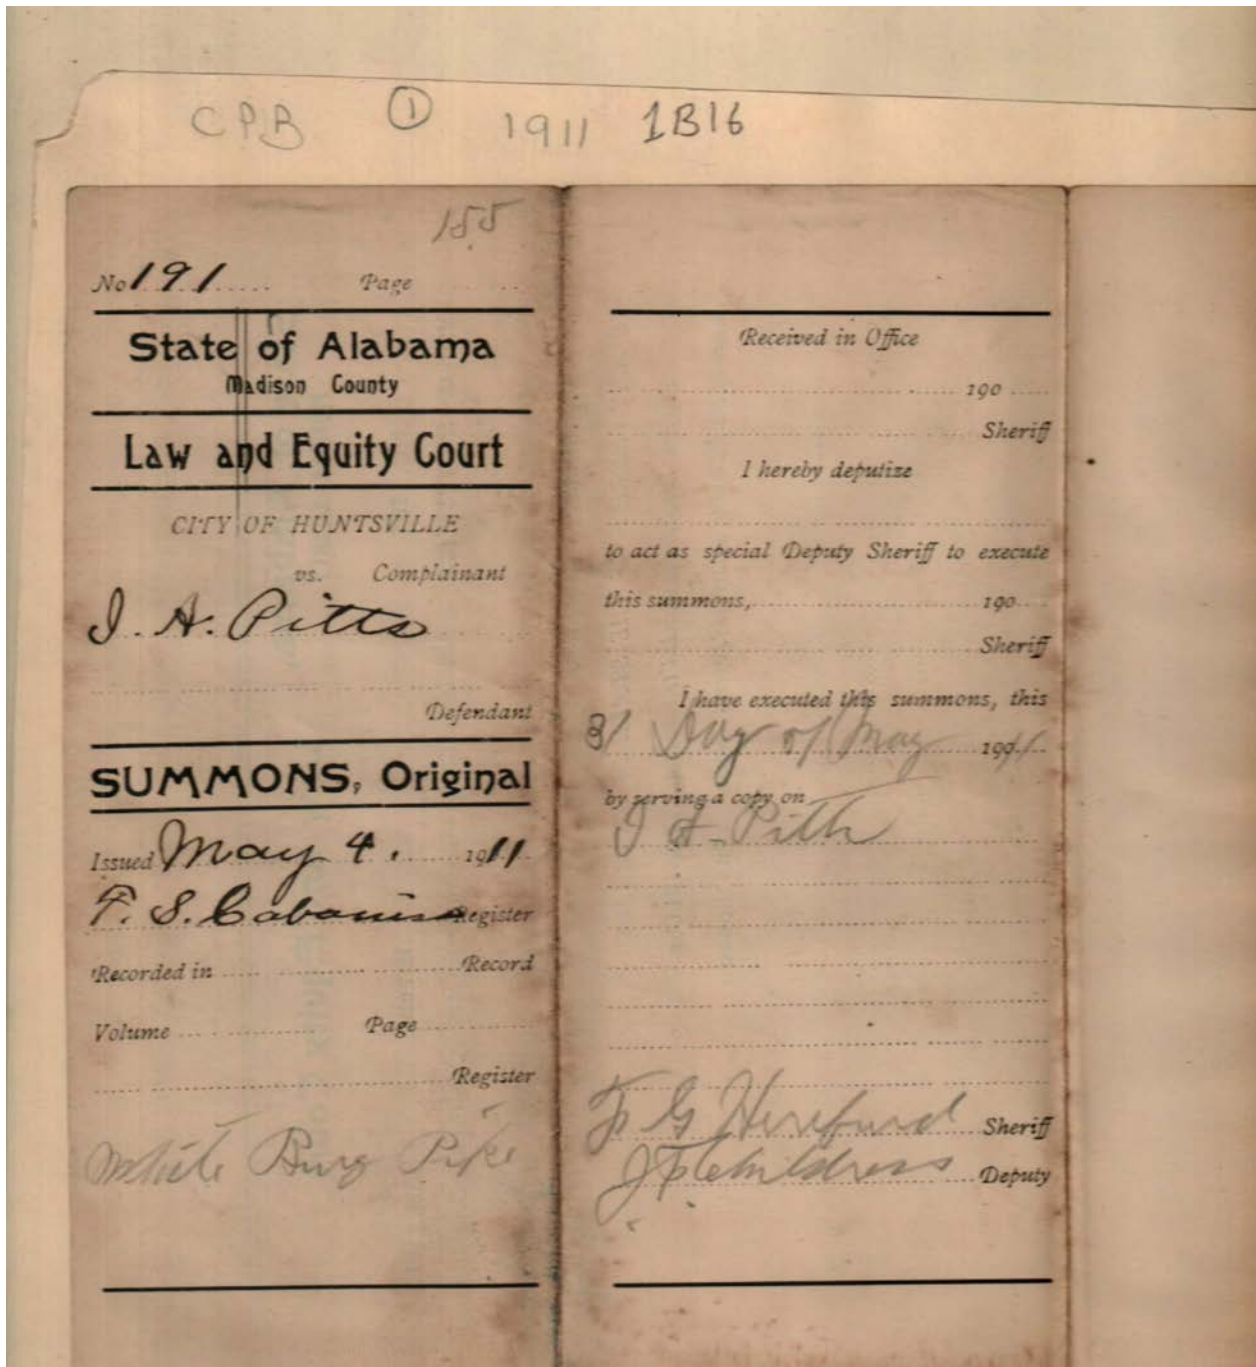 CPB ① 1911 1B16
155
No 191 Page
State of Alabama
Madison County
Law and Equity Court
CITY OF HUNTSVILLE
vs. Complainant
I. A. Pitts
Defendant
SUMMONS, Original
Issued May 4. 1911
T. S. Cabaniss Register
Recorded in Record
Volume Page
Register
White Burg Pike
Received in Office
190
Sheriff
I hereby deputize
to act as special Deputy Sheriff to execute
this summons, 190
Sheriff
I have executed this summons, this
31 Day of May 1911
by serving a copy on
I A Pitts
Sheriff
Deputy